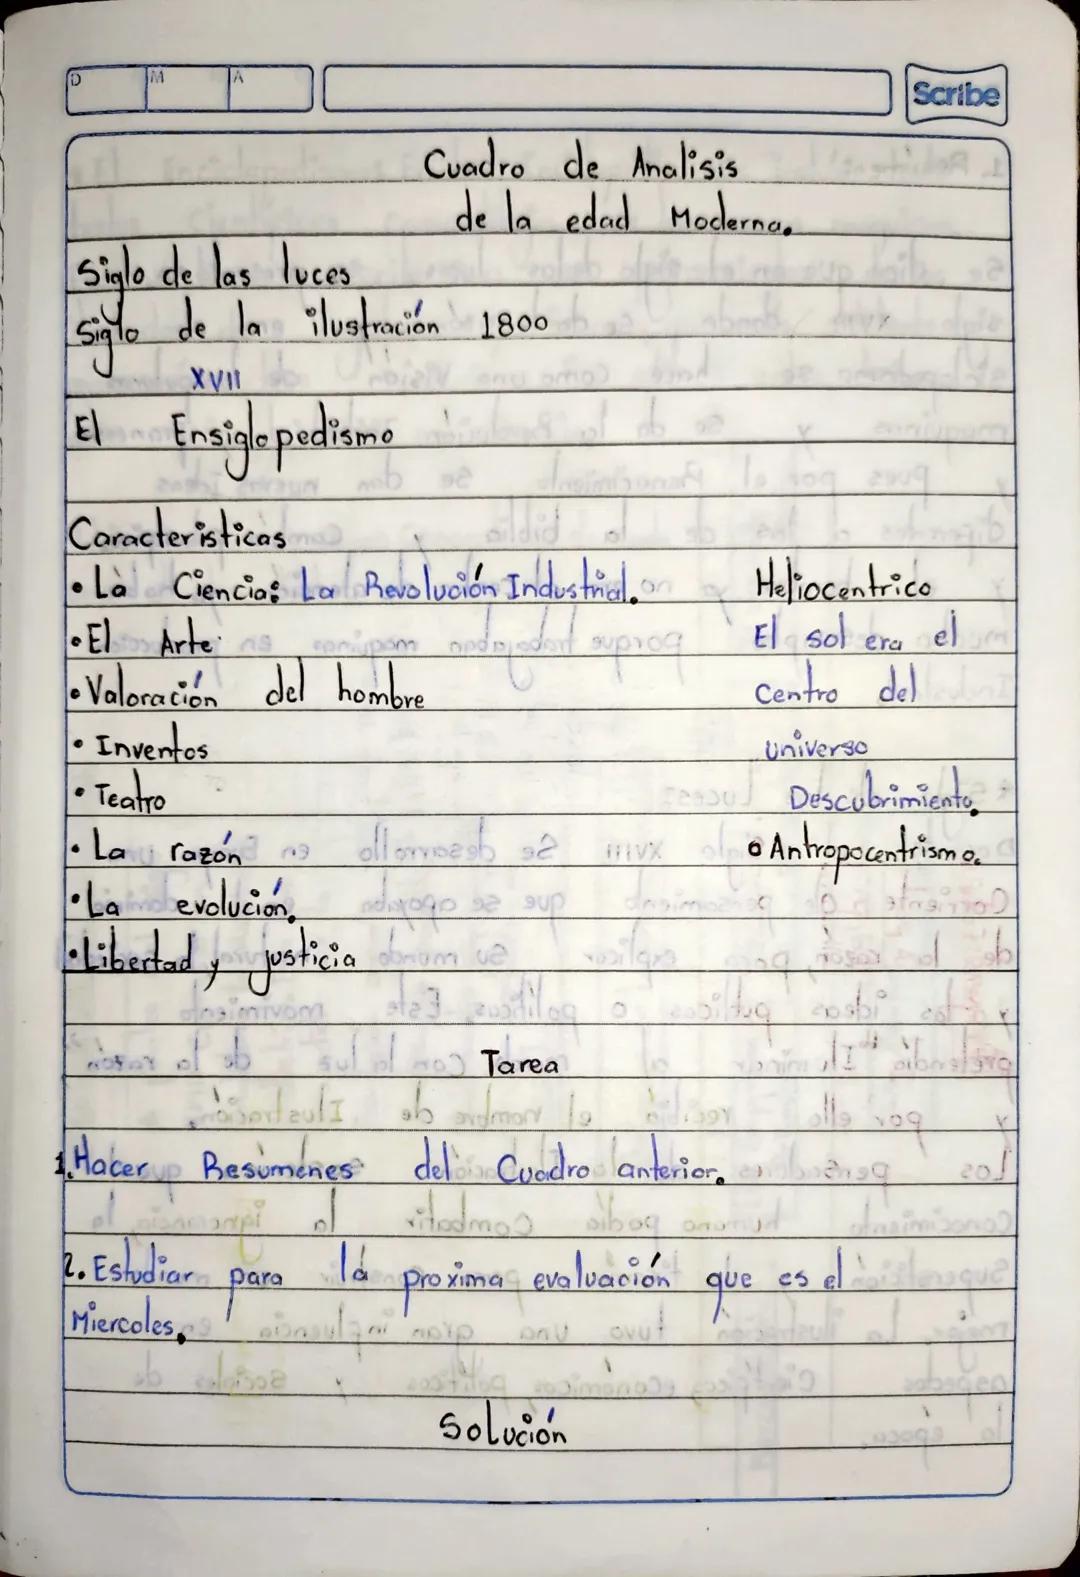 D M A
Scribe
Cuadro de Analisis
de la edad Moderna.
Siglo de las luces
Siglo de la ilustración 1800
XVII
El Ensiglopedismo
Caracteristicas
• La Ciencia: La Revolución Industrial. Heliocentrico
• El Arte El sol era el
• Valoración del hombre Centro del
• Inventos universo
• Teatro Descubrimiento.
• La razón • Antropocentrismo.
• La evolución.
• Libertad y justicia
Tarea
1. Hacer Resúmenes del Cuadro anterior.
2. Estudiar para lá proxima evaluación que es el
Miercoles.
Solución